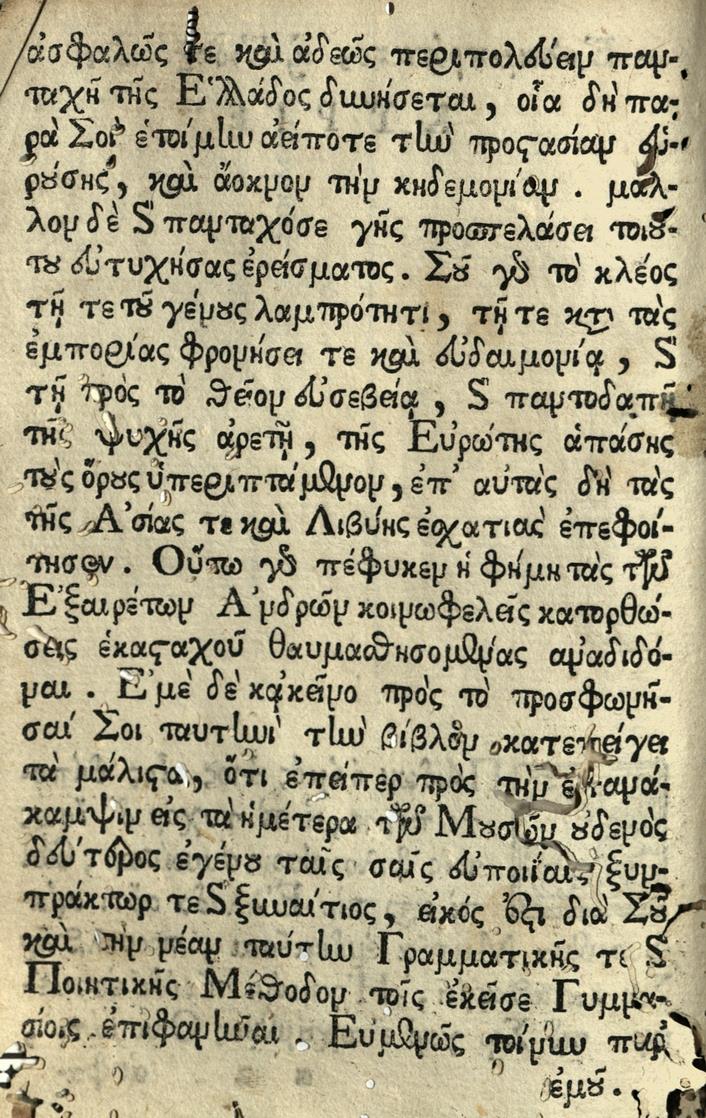 ἀσφαλῶς τε καὶ ἀδεῶς περιπολεύειν παν-
ταχῆ τῆς Ἑλλάδος δυνήσεται, οἷα δὴ πα-
ρὰ Σοῦ ἑτοίμην ἀείποτε τὴν προστασίαν εὑ-
ρούσης, καὶ ἄοκνον τὴν κηδεμονίαν. μᾶλ-
λον δὲ καὶ πανταχόσε γῆς προσπελάσει τοιού-
του εὐτυχήσας ἐρείσματος. Σοῦ γὰρ τὸ κλέος
τῇ τε τοῦ γένους λαμπρότητι, τῇ τε κατὰ τὰς
ἐμπορίας φρονήσει τε καὶ εὐδαιμονίᾳ, καὶ
τῇ πρὸς τὸ θεῖον εὐσεβείᾳ, καὶ παντοδαπῇ
τῆς ψυχῆς ἀρετῇ, τῆς Εὐρώπης ἁπάσης
τοὺς ὅρους ὑπεριπτάμενον, ἐπ' αὐτὰς δὴ τὰς
τῆς Ἀσίας τε καὶ Λιβύης ἐσχατιὰς ἐπεφοί-
τησεν. Οὕτω γὰρ πέφυκεν ἡ φήμη τὰς τῶν
Ἐξαιρέτων Ἀνδρῶν κοινωφελεῖς κατορθώ-
σεις ἑκασταχοῦ θαυμασθησομένας ἀναδιδό-
ναι. Ἐμὲ δὲ κᾀκεῖνο πρὸς τὸ προσφωνῆ-
σαί Σοι ταυτηνὶ τὴν βίβλον κατεπείγει
τὰ μάλιστα, ὅτι ἐπείπερ πρὸς τὴν ἐπανά-
καμψιν εἰς τὰ ἡμέτερα τῶν Μουσῶν οὐδενὸς
δεύτερος ἐγένου ταῖς σαῖς εὐποιΐαις ξυμ-
πράκτωρ τε καὶ ξυναίτιος, εἰκός ἐστι διὰ Σοῦ
καὶ τὴν νέαν ταύτην Γραμματικῆς τε καὶ
Ποιητικῆς Μέθοδον τοῖς ἐκεῖσε Γυμνα-
σίοις ἐπιφανῆναι. Εὐμενῶς τοίνυν παρ'
ἐμοῦ.